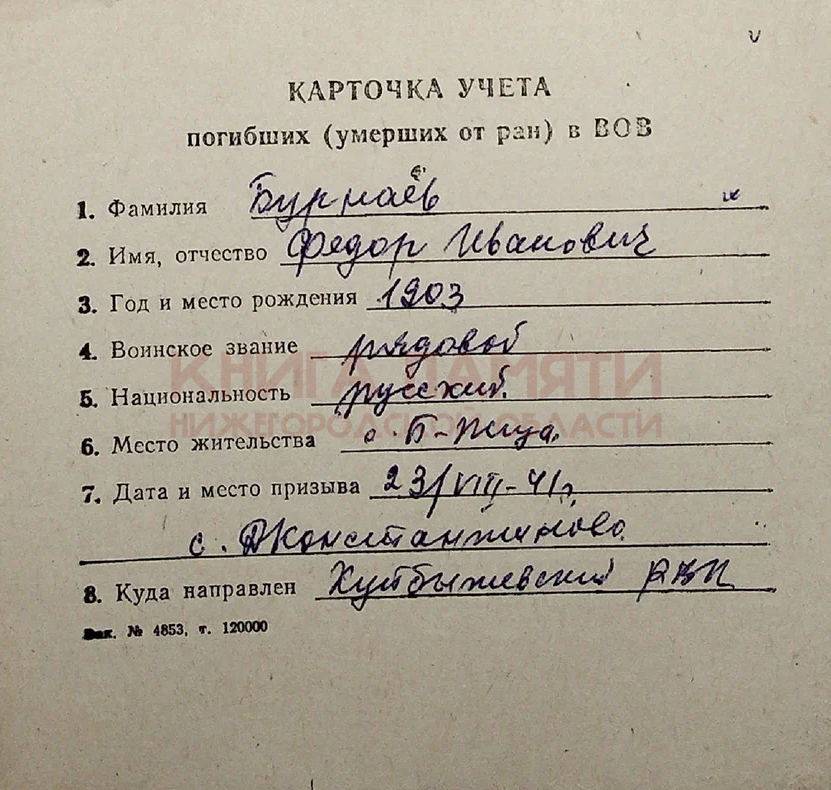 КАРТОЧКА УЧЕТА
погибших (умерших от ран) в ВОВ
1. Фамилия Бурнаев
2. Имя, отчество Федор Иванович
3. Год и место рождения 1903
4. Воинское звание рядовой
5. Национальность русский
КНИГА ПАМЯТИ
НИЖЕГОРОДСКОЙ ОБЛАСТИ
6. Место жительства с. Б-
7. Дата и место призыва 23/VIII-41г.
с. ДКонстантиново
8. Куда направлен Куйбышевский РВК
Зак. № 4853, т. 120000